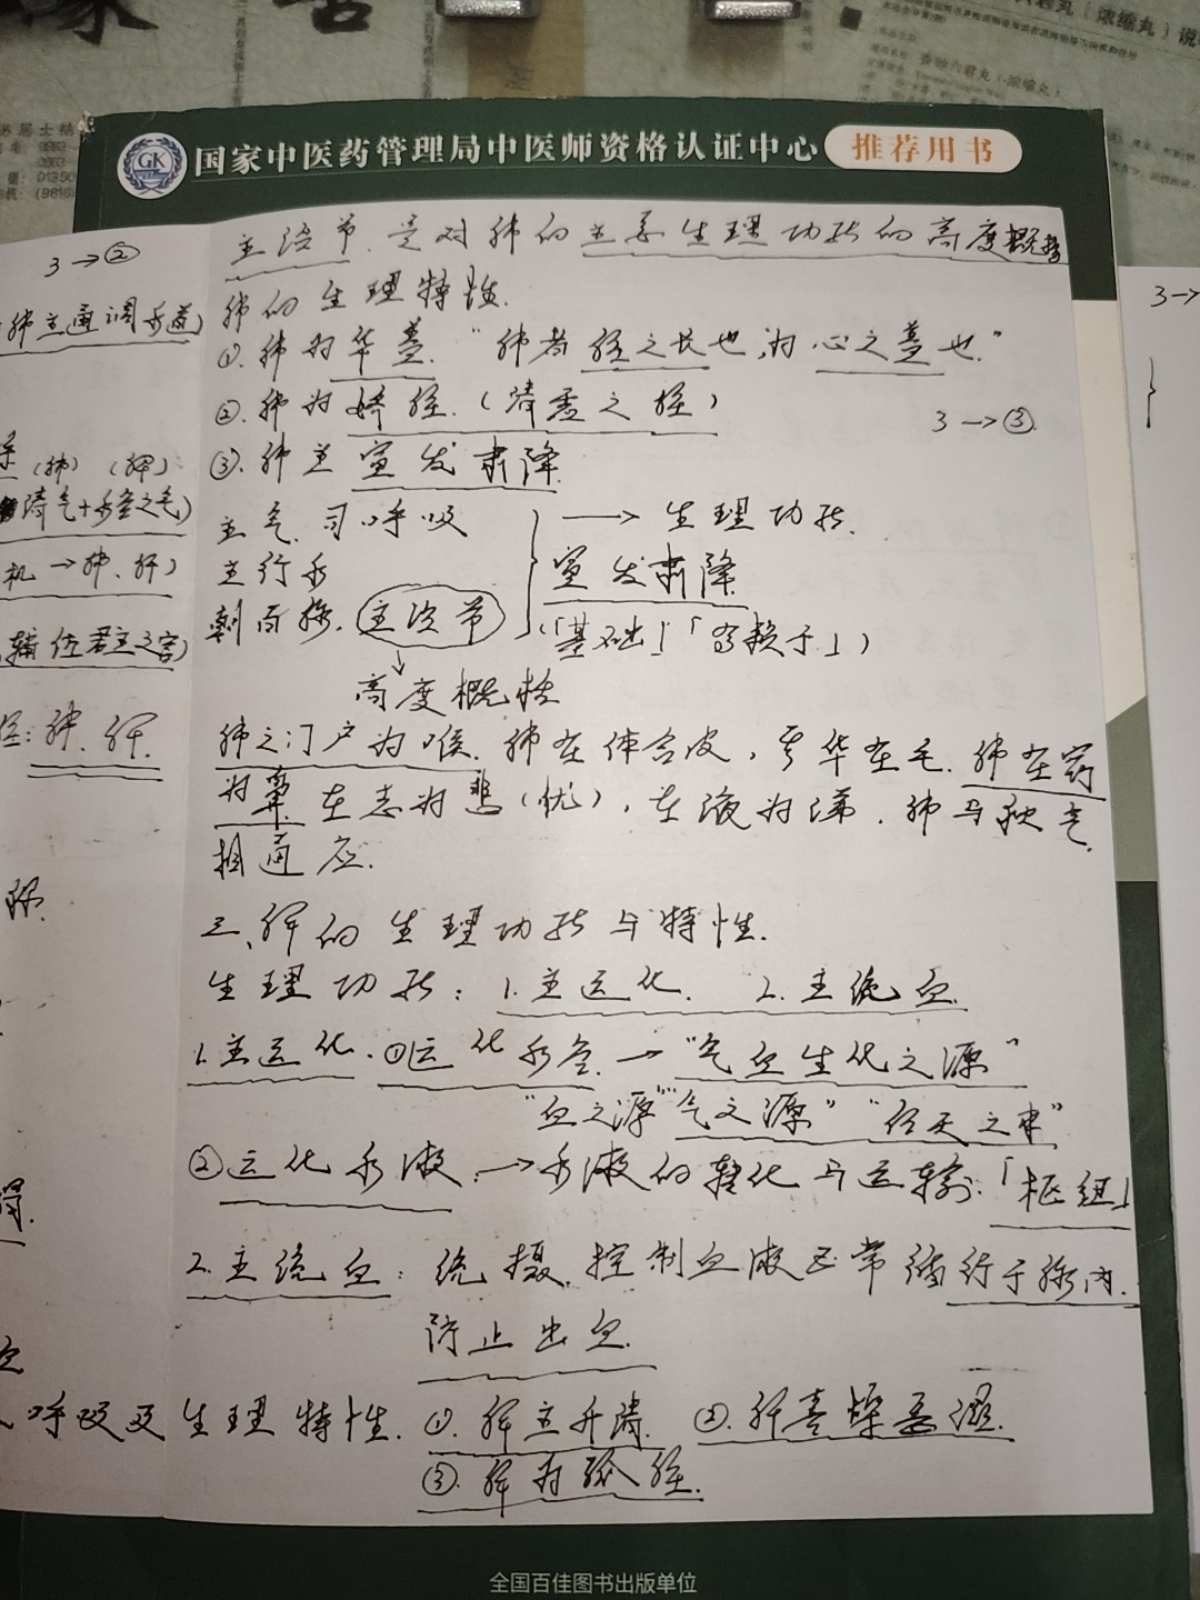 国家中医药管理局中医师资格认证中心 推荐用书
GK
3→②
肺主通调水道)
(肺) (脾)
清气+水谷之气)
机→肺、肝)
辅佐君主之官)
肺、肝.
主治节、是对肺的主要生理功能的高度概括
肺的生理特性.
①.肺为华盖. “肺者脏之长也,为心之盖也.”
②.肺为娇脏.(清虚之脏)
3→③.
③.肺主宣发肃降.
主气司呼吸 → 生理功能.
主行水 宣发肃降
朝百脉.主治节 (「基础」「有赖于」)
↓
高度概括
肺之门户为喉.肺在体合皮,其华在毛.肺在窍
为鼻.在志为悲(忧),在液为涕.肺与秋气
相通应.
三、脾的生理功能与特性.
生理功能: 1.主运化. 2.主统血.
1.主运化.①运化水谷.→“气血生化之源”
“血之源”“气之源”“后天之本”
②运化水液.→水液的转化与运输:「枢纽」
2.主统血: 统摄.控制血液正常循行于脉内.
防止出血.
呼吸及生理特性. ①.脾主升清. ②.肝喜燥恶湿.
③.脾为孤脏.
3→
全国百佳图书出版单位